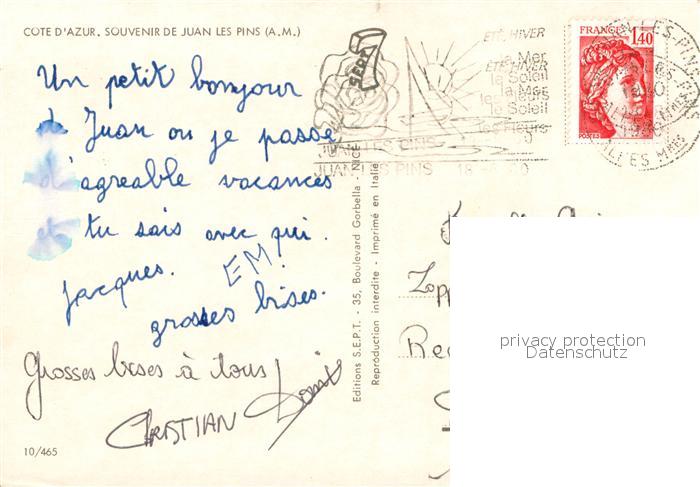 COTE D'AZUR. SOUVENIR DE JUAN LES PINS (A.M.)
Un petit bonjour
de Juan ou je passe
d'agreable vacances
tu sais avec qui.
Jacques. EM!
grosses bises.
Grosses bises à tous
CHRISTIAN
10/465
Editions S.E.P.T. - 35, Boulevard Gorbella - NICE
Reproduction interdite - Imprimé en Italie
SEPT
ETE, HIVER
la Mer
le Soleil
les Fleurs
JUAN LES PINS
FRANCE
1,40
POSTES
privacy protection
Datenschutz